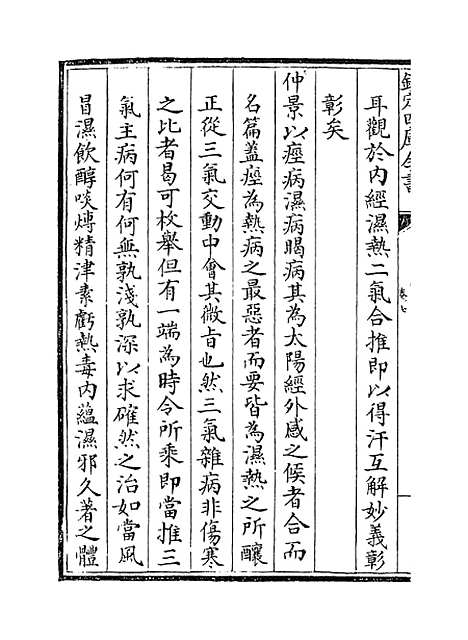 欽定四庫全書
卷七
耳觀於内經濕熱二氣合推即以得汗互解妙義彰
彰矣
仲景以痙病濕病暍病其為太陽經外感之候者合而
名篇蓋痙為熱病之最惡者而要皆為濕熱之所釀
正從三氣交動中會其微旨也然三氣雜病非傷寒
之比者曷可枚舉但有一端為時令所乘即當推三
氣主病何有何無孰淺孰深以求確然之治如當風
冒濕飲醇啖煿精津素虧熱毒内蘊濕邪久著之體